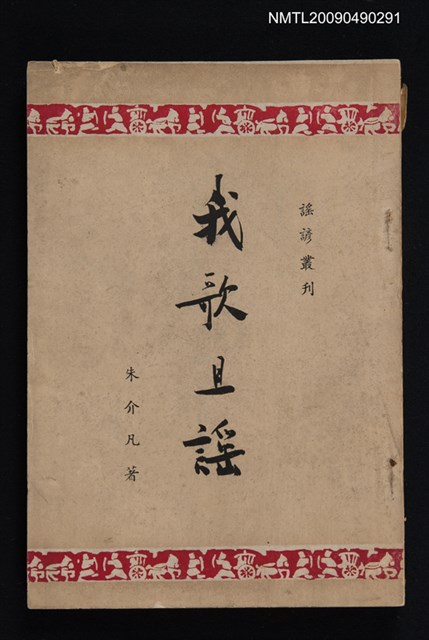 NMTL20090490291
謠諺叢刊
我歌且謠
朱介凡著